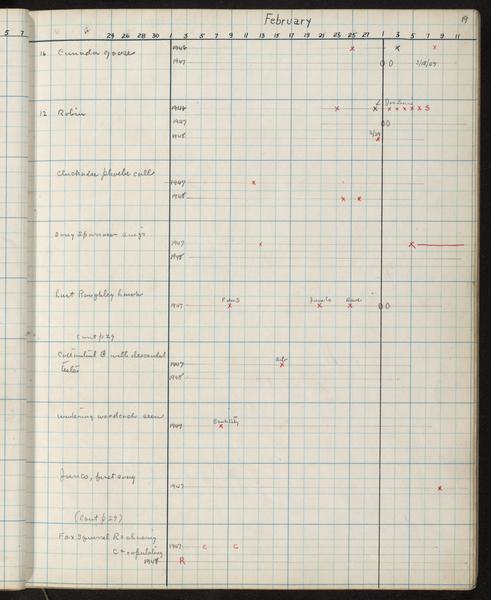 February
19
5 7
24 26 28 30 1 3 5 7 9 11 13 15 17 19 21 23 25 27 1 3 5 7 9 11
16 Canada goose 1946 x x x
1947 0 0 3/18/47
12 Robin 1946 x x x x x x x S
1947 0 0
1948 2/29 x
Chickadee phoebe calls
1947 x
1948 x x
Song Sparrow sings
1947 x x
1948
Last Roughleg hawk
1947 x x x 0 0
Cont p 29
Cottontail with descended
testes 1947 x
1948
wandering woodchuck seen
1947 x
Junco, first song
1947 x
(Cont p 29)
Fox Squirrel R = chasing
C = copulating
1947 C C
1948 R